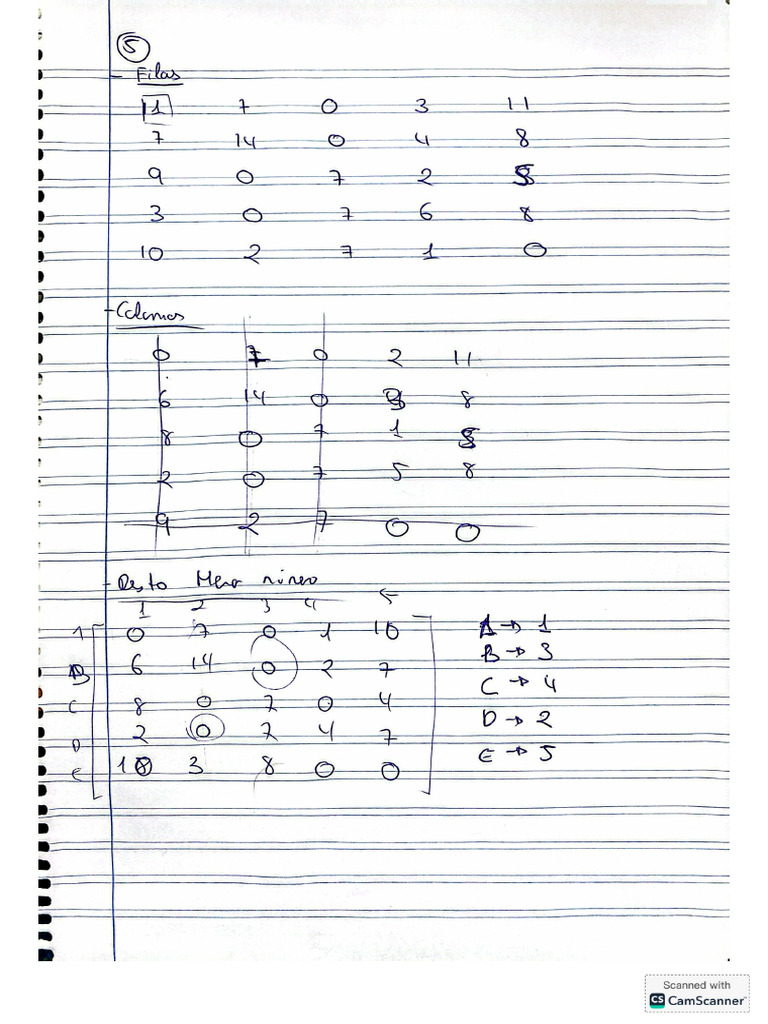 5
- Filas
1 7 0 3 11
7 14 0 4 8
9 0 7 2 5
3 0 7 6 8
10 2 7 1 0
- Columnas
0 7 0 2 11
6 14 0 3 8
8 0 7 1 5
2 0 7 5 8
9 2 7 0 0
- Resto Menor número
1 2 3 4 ←
0 7 0 1 10 A → 1
B 6 14 0 2 7 B → 3
C 8 0 7 0 4 C → 4
D 2 0 7 4 7 D → 2
E 10 3 8 0 0 E → 5
Scanned with
CS CamScanner